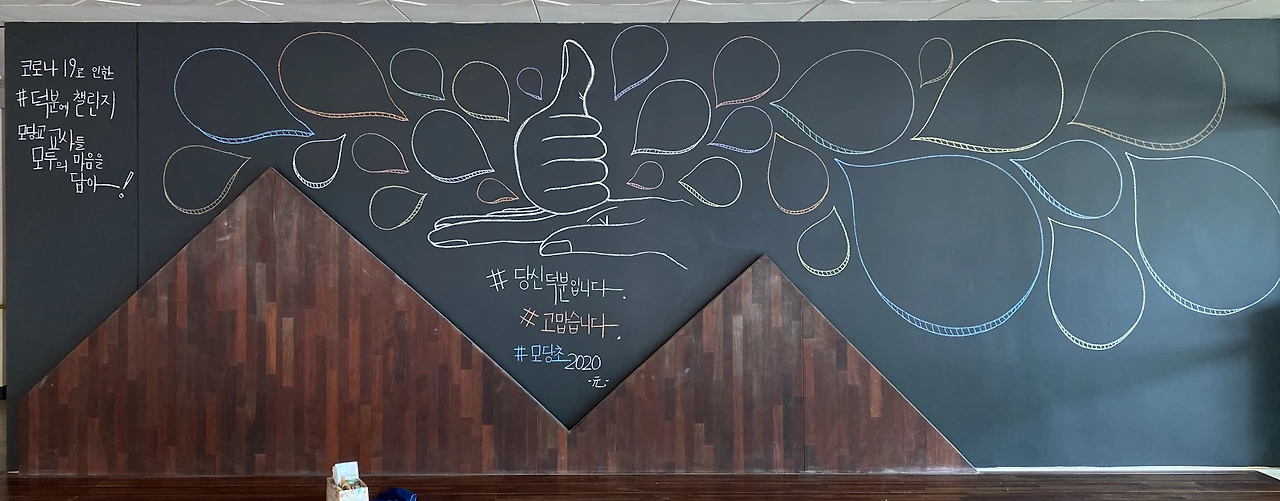 코로나 19로 인한
#덕분에 챌린지
모당교 교사들
모두의 마음을
담아~!
# 당신덕분입니다.
# 고맙습니다.
#모당초 2020